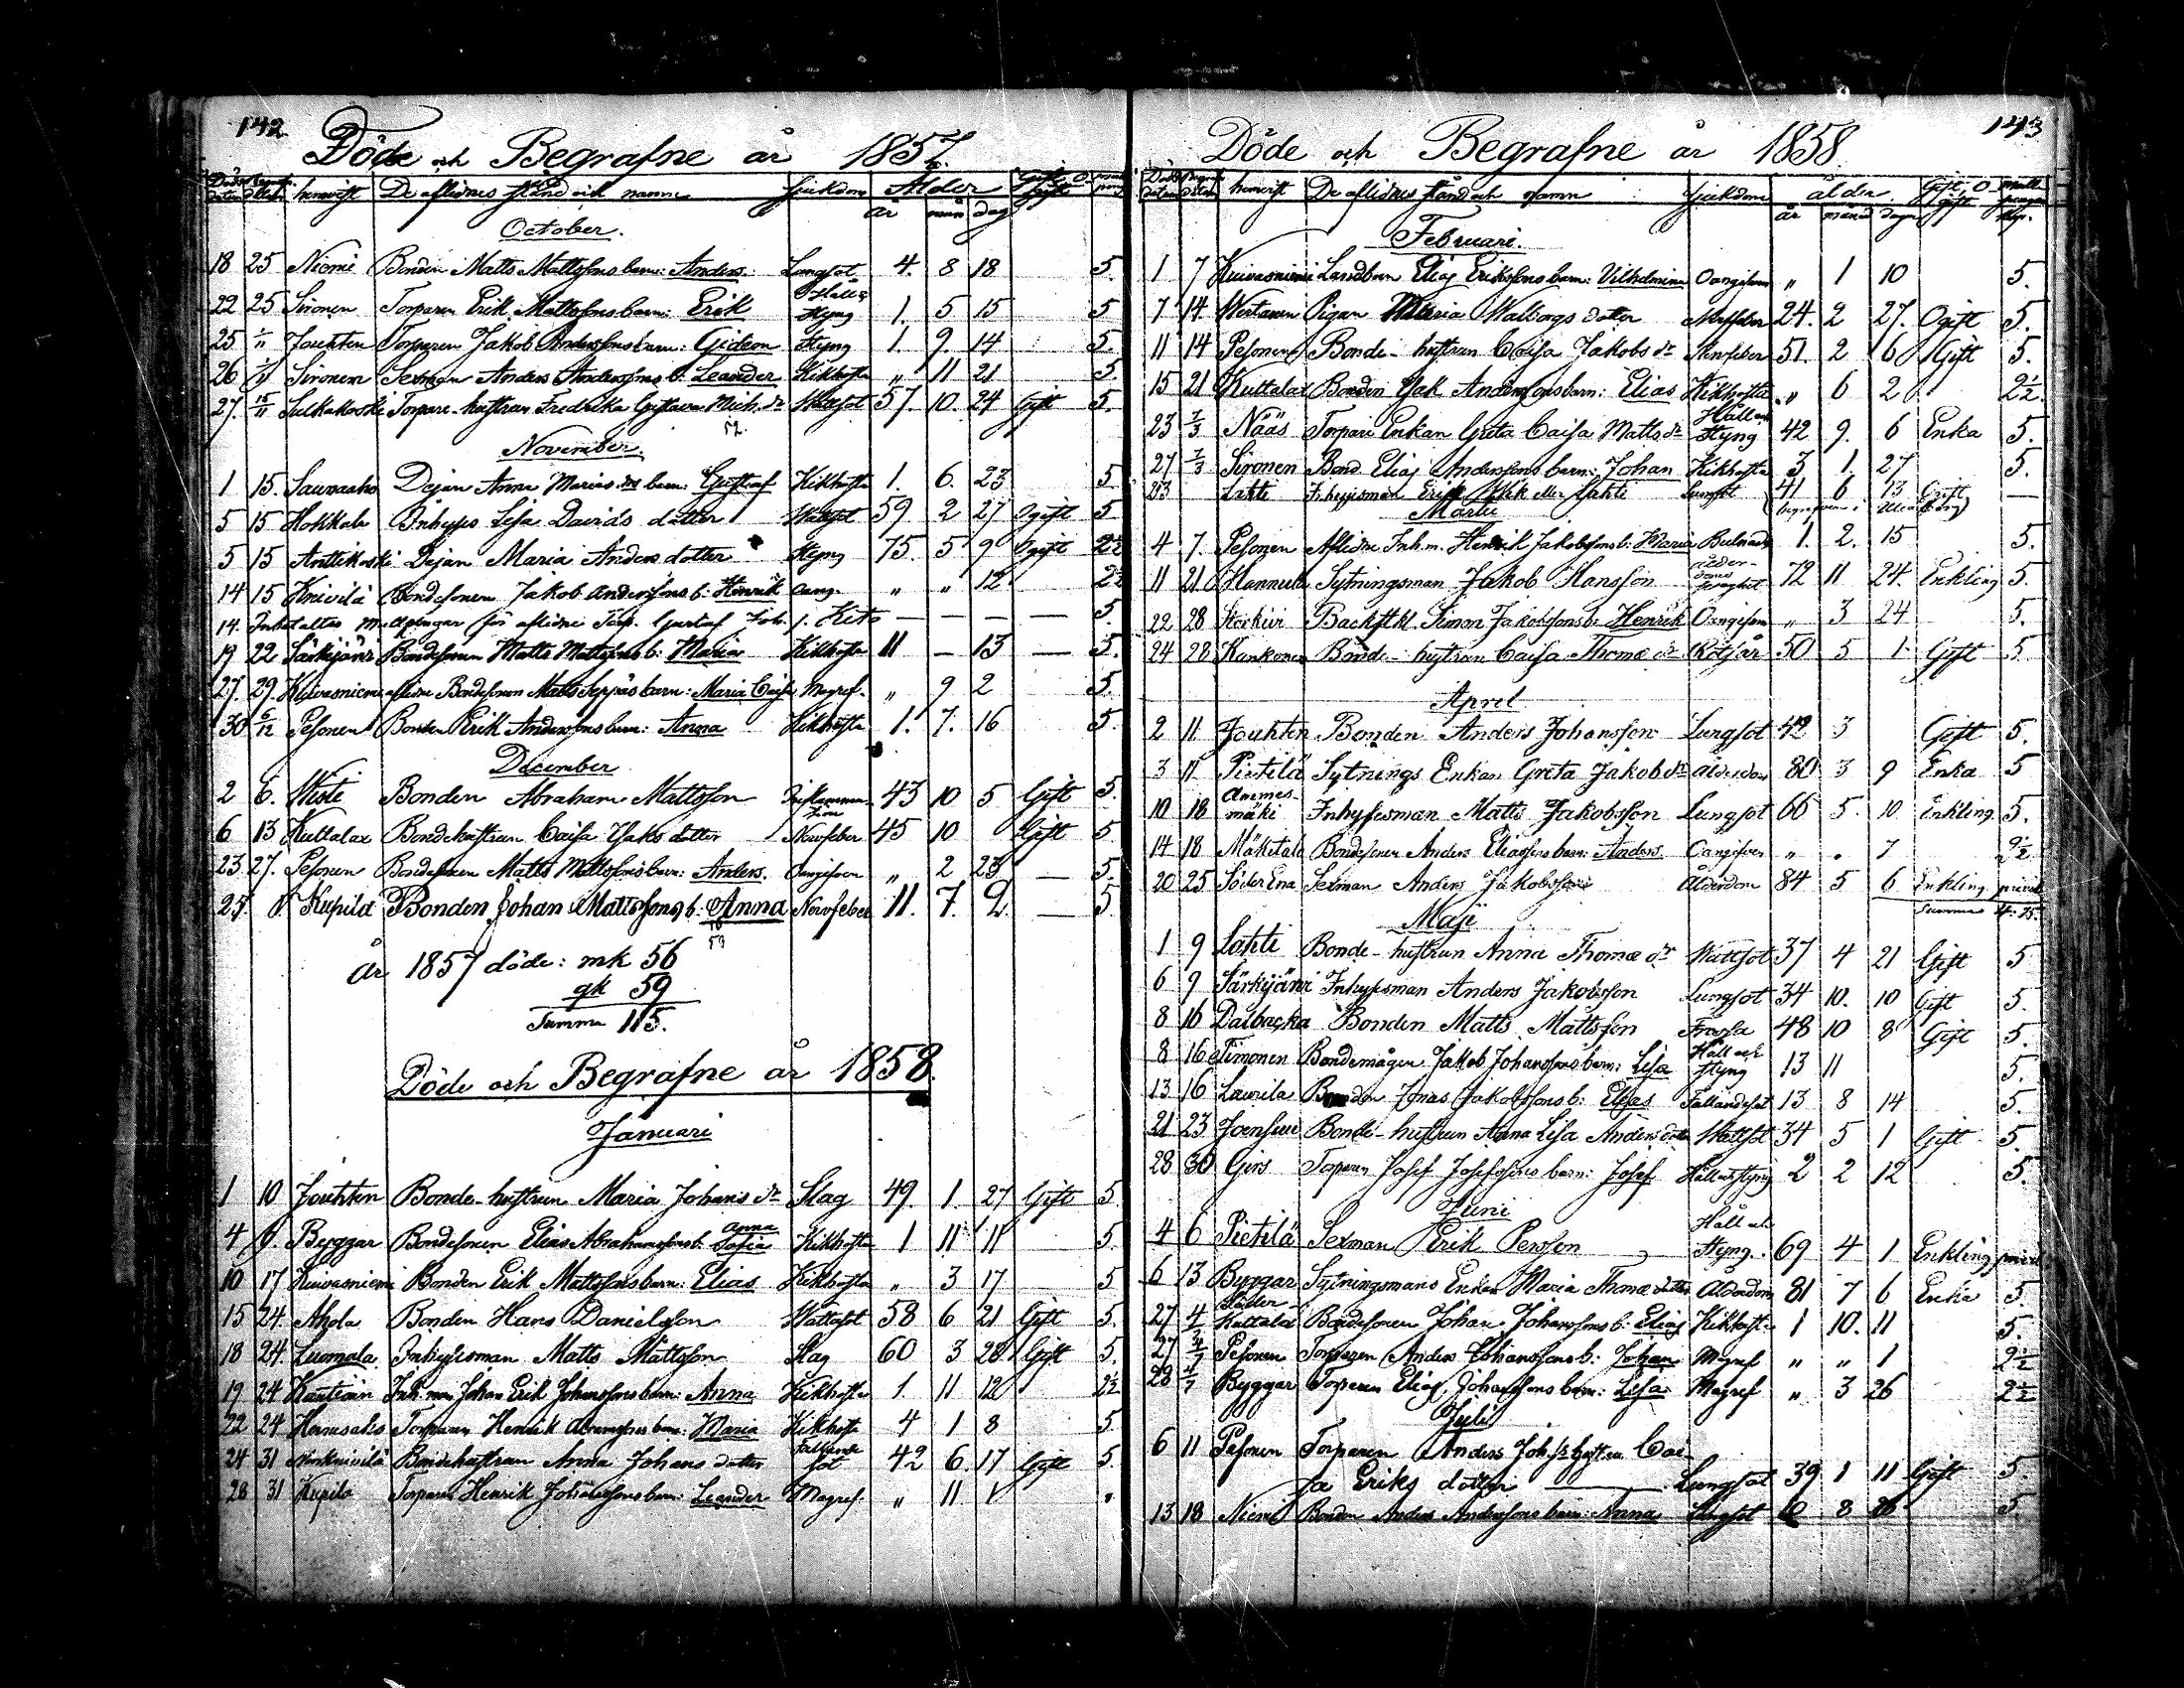 142
Döde och Begrafne år 1857.
hemvist De aflidnes stånd och namn Sjukdom Ålder
år mån dag
October.
18 25 Niemi Bonden Matts Mattssons barn: Anders. Lungsot 4. 8 18 5.
22 25 Sironen Torparen Erik Mattssons barn: Erik Håll & Styng 1. 5 15 5
25 1/11 Jouhten Torparen Jakob Anderssons barn: Gideon Styng 1. 9. 14 5.
26 1/11 Sironen Sexman Anders Anderssons b: Leander Kikhosta " 11 21 5.
27. 15/11 Sulkakoski Torpare-hustrun Fredrika Gustava Mich. dr Wattsot 57. 10. 24 Gift 5.
52.
November.
1 15. Sauvaaho Dejan Anna Marias barn: Gustaf Kikhosta 1. 6. 23 5
5 15 Hokkala Inhyses Lisa Davids dotter Wattsot 59 2 27 Ogift 5
5 15 Anttikoski Dejan Maria Anders dotter Styng 75. 5 9 Ogift 2½
14 15 Knivilä Bondesonen Jakob Anderssons b: Henrik " " 12 2½
14. Inbetaltes för aflidne Torp. Gustaf — — — — 5.
19 22 Särkijärvi Bondesonen Matts Mattssons b: Maria Kikhosta 11 — 13 — 5.
27. 29. Kuivasniemi aflidne Bondesonen Matts Seppäs barn: Maria Caisa Magref. " 9 2 5.
30 6/12 Pesonen Bonden Erik Anderssons barn: Anna Kikhosta 1. 7. 16 5.
December
2 6. Wisti Bonden Abraham Mattsson Inflammation 43 10 5 Gift 5.
6 13 Kuttalax Bondehustrun Caisa Isaks dotter Nervfeber 45 10 Gift 5
23 27. Pesonen Bondesonen Matts Mattssons barn: Anders. Oangifven " 2 23 — 5.
25 Kupila Bonden Johan Mattssons b: Anna Nervfeber 11. 7. 2. — 5
År 1857 döde: mk 56
qk 59
Summa 115.
Döde och Begrafne år 1858.
Januari
1 10 Jouhten Bonde-hustrun Maria Johans dr Slag 49. 1. 27 Gift 5.
4 Byggar Bondesonen Elias Abrahamssons b. Anna Sofia Kikhosta 1 11 11 5.
10 17 Kuivasniemi Bonden Erik Mattssons barn: Elias Kikhosta " 3 17 5
15 24. Ahola Bonden Hans Danielsson Wattsot 58 6 21 Gift 5.
18 24. Luomala Inhysesman Matts Mattsson Slag 60 3 28 Gift 5.
19 24 Inh. man Johan Erik Johanssons barn: Anna Kikhosta 1. 11 12 2½
22 24 Torparen Henrik barn: Maria Kikhosta 4 1 8 5
24 31 Bondehustrun Anna Johans dotter Fallande sot 42 6. 17 Gift 5
28 31 Kupila Torparen Henrik Johanssons barn: Leander Magref. " 11 1
143
Döde och Begrafne år 1858
hemvist De aflidnes stånd och namn Sjukdom ålder Gift, Ogift
år månad dagar
Februari.
1 7 Kuivasniemi Landbon Elias Erikssons barn: Vilhelmina Oangifven " 1 10 5.
7 14. Wertanen Pigan Maria Walborgs dotter Nervfeber 24. 2 27. Ogift 5.
11 14 Pesonen Bonde-hustrun Caisa Jakobs dr Nervfeber 51. 2 6 Gift 5.
15 21 Kuttalax Bonden Isak Anderssons barn: Elias Kikhosta " 6 2 2½.
23 7/3 Nääs Torpare Enkan Greta Caisa Matts dr Håll och Styng 42 9. 6 Enka 5.
27 7/3 Sironen Bond. Elias Anderssons barn: Johan Kikhosta 3 1. 27 5.
Lahti Inhysesman Erik Lahti Lungsot 41 6 13 Ogift —
Martii
4 7. Pesonen Aflidne Inh. m. Henrik Jakobssons b: Maria Bulnad 1. 2. 15 5.
11 21 Hannula Sytningsman Jakob Hansson ålderdoms 72 11 24. Enkling 5.
22 28 Backst.kl. Simon Jakobssons b: Henrik Oangifven " 3 24 5.
24 28 Kankonen Bonde-hustrun Caisa Thomæ dr Rötsår 50 5 1 Gift 5
April
2 11 Jouhten Bonden Anders Johansson Lungsot 42 3 Gift 5.
3 11. Pietilä Sytnings Enkan Greta Jakobs dr ålderdom 80 3 9 Enka 5
10 18 Ammesmäki Inhysesman Matts Jakobsson Lungsot 66 5. 10 Enkling. 5.
14 18 Mäkitalo Bondesonen Anders Eliassons barn: Anders. Oangifven " " 7 2½
20 25 Söderena Sexman Anders Jakobsson Ålderdom 84 5 6 Enkling
Summa
Maji
1 9 Lahti Bonde-hustrun Anna Thomæ dr Wattsot 37 4 21 Gift 5
6 9 Särkijärvi Inhysesman Anders Jakobsson Lungsot 34 10. 10 Gift 5.
8 16 Dalbacka Bonden Matts Mattsson Frossa 48 10 8 Gift 5.
8 16 Timonen Bondemågen Jakob Johanssons barn: Lisa Håll och Styng 13 11 5.
13 16 Laurila Bonden Jonas Jakobssons b: Elias Fallandesot 13 8 14 5.
21 23 Joensuu Bonde-hustrun Anna Lisa Anders dotter Wattsot 34 5 1 Gift 5
28 30 Girs Torparen Josef Josefssons barn: Josef Håll och Styng 2 2 12 5.
Junii
4 6 Pietilä Sexman Erik Persson Håll och Styng. 69 4 1 Enkling
6 13 Byggar Sytningsmans Enkan Maria Thomæ dotter Ålderdom 81 7 6 Enka 5.
27 4/7 Söder Kuttalax Bondesonen Johan Johanssons b: Elias Kikhosta 1 10. 11 5.
27 4/7 Pesonen Torparen Anders Johanssons b: Johan Magref " " 1 2½
28 4/7 Byggar Torparen Elias Johanssons barn: Lisa Magref " 3 26 2½
Julii
6 11 Pesonen Torparen Anders Joh.s. hustru Cai-
sa Eriks dotter — Lungsot 39 1 11 Gift 5.
13 18 Niemi Bonden Anders Anderssons barn: Anna Lungsot 8 26 5.